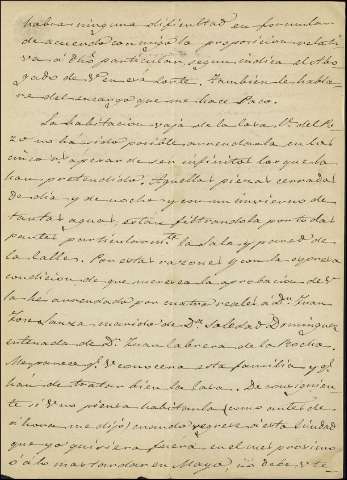 habra ninguna dificultad en formular
de acuerdo conmigo la proposicion relati
va á dho particular, segun indica el Abo
gado de V. en esa Corte. Tambien le habla
re del encargo que me hace Paco.
La habitacion vaja de la Casa C. del Ri
zo no há sido posible arrendarla en los
cinco d. apesar de ser infinitos los que la
han pretendido. Aquellas piezas cerradas
de dia y de noche y con un invierno de
tantas aguas, estan filtrandola por todas
partes particularm.te la Sala y pared de
la Calle. Por estas razones y con la expresa
condicion de que merezca la aprobacion de V.
la he arrendado por cuatro reales á D.n Juan
Jose Lanza marido de D.a Soledad Dominguez
entenada de D.n Juan Cabrera de la Rocha.
Me parece q.e V. conocerá esta familia y q.e
hán de tratar bien la casa. De consiguien
te si V. no piensa habitarla (como antes de
ahora me dijo) cuando regrese á esta Ciudad
que yo quisiera fuera en el mes proximo
ó á lo mas tardar en Mayo, no debe V. te